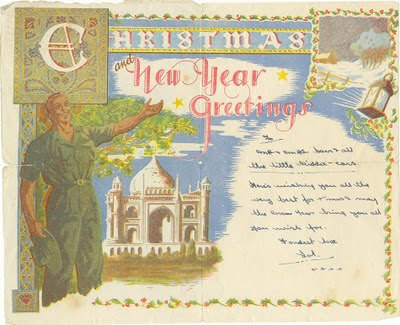 CHRISTMAS
and
New Year
Greetings
To
all
the little
Here's wishing you all the
very best for
the New Year bring you all
you wish for.
Fondest love